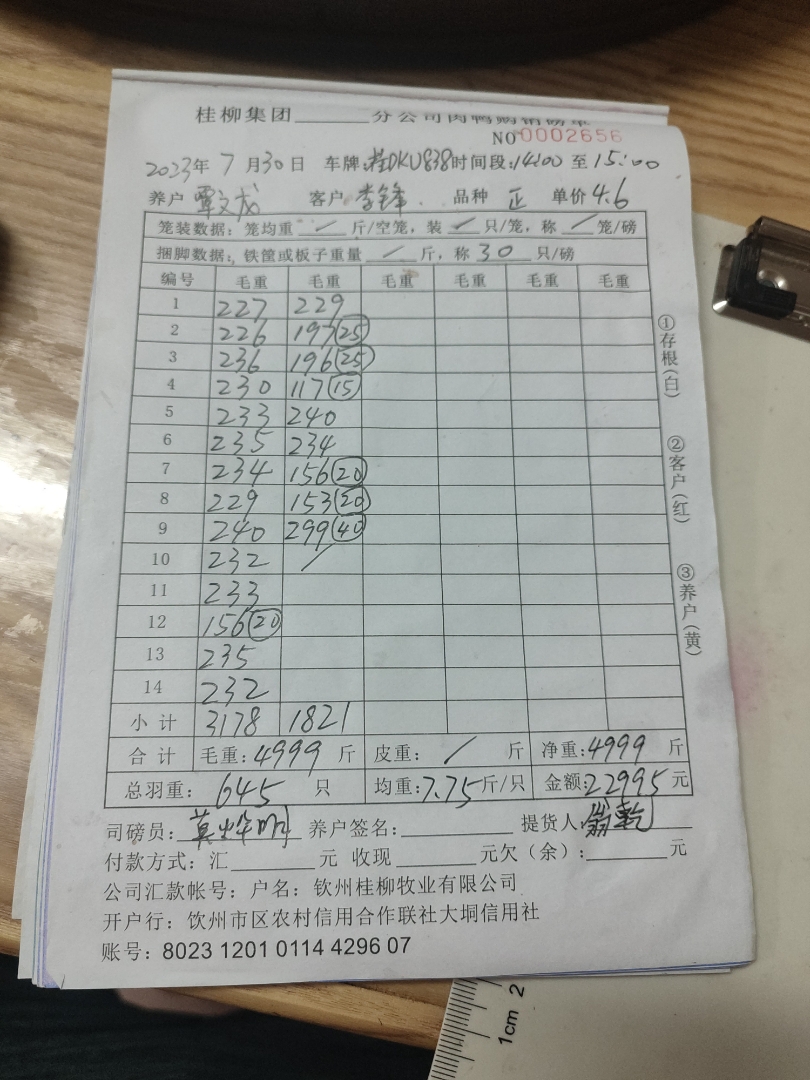 桂柳集团______分公司肉鸭购销磅单
NO 0002656
2023年 7 月30日 车牌:桂DKU838时间段:14:00 至15:00
养户 覃文龙 客户 李锋 品种 正 单价4.6
笼装数据: 笼均重 / 斤/空笼, 装 / 只/笼, 称 / 笼/磅
捆脚数据:, 铁筐或板子重量 / 斤, 称 30 只/磅
编号 毛重 毛重 毛重 毛重 毛重 毛重
1 227 229
2 226 197(25)
3 236 196(25)
4 230 117(15)
5 233 240
6 235 234
7 234 156(20)
8 229 153(20)
9 240 299(40)
10 232 /
11 233
12 156(20)
13 235
14 232
小 计 3178 1821
合 计 毛重:4999 斤 皮重: / 斤 净重:4999 斤
总羽重: 645 只 均重:7.75斤/只 金额:22995元
司磅员: 养户签名:________ 提货人:
付款方式: 汇______元 收现______元欠(余):______元
公司汇款帐号: 户名: 钦州桂柳牧业有限公司
开户行: 饮州市区农村信用合作联社大垌信用社
账号: 8023 1201 0114 4296 07
①存根(白)
②客户(红)
③养户(黄)
1cm 2